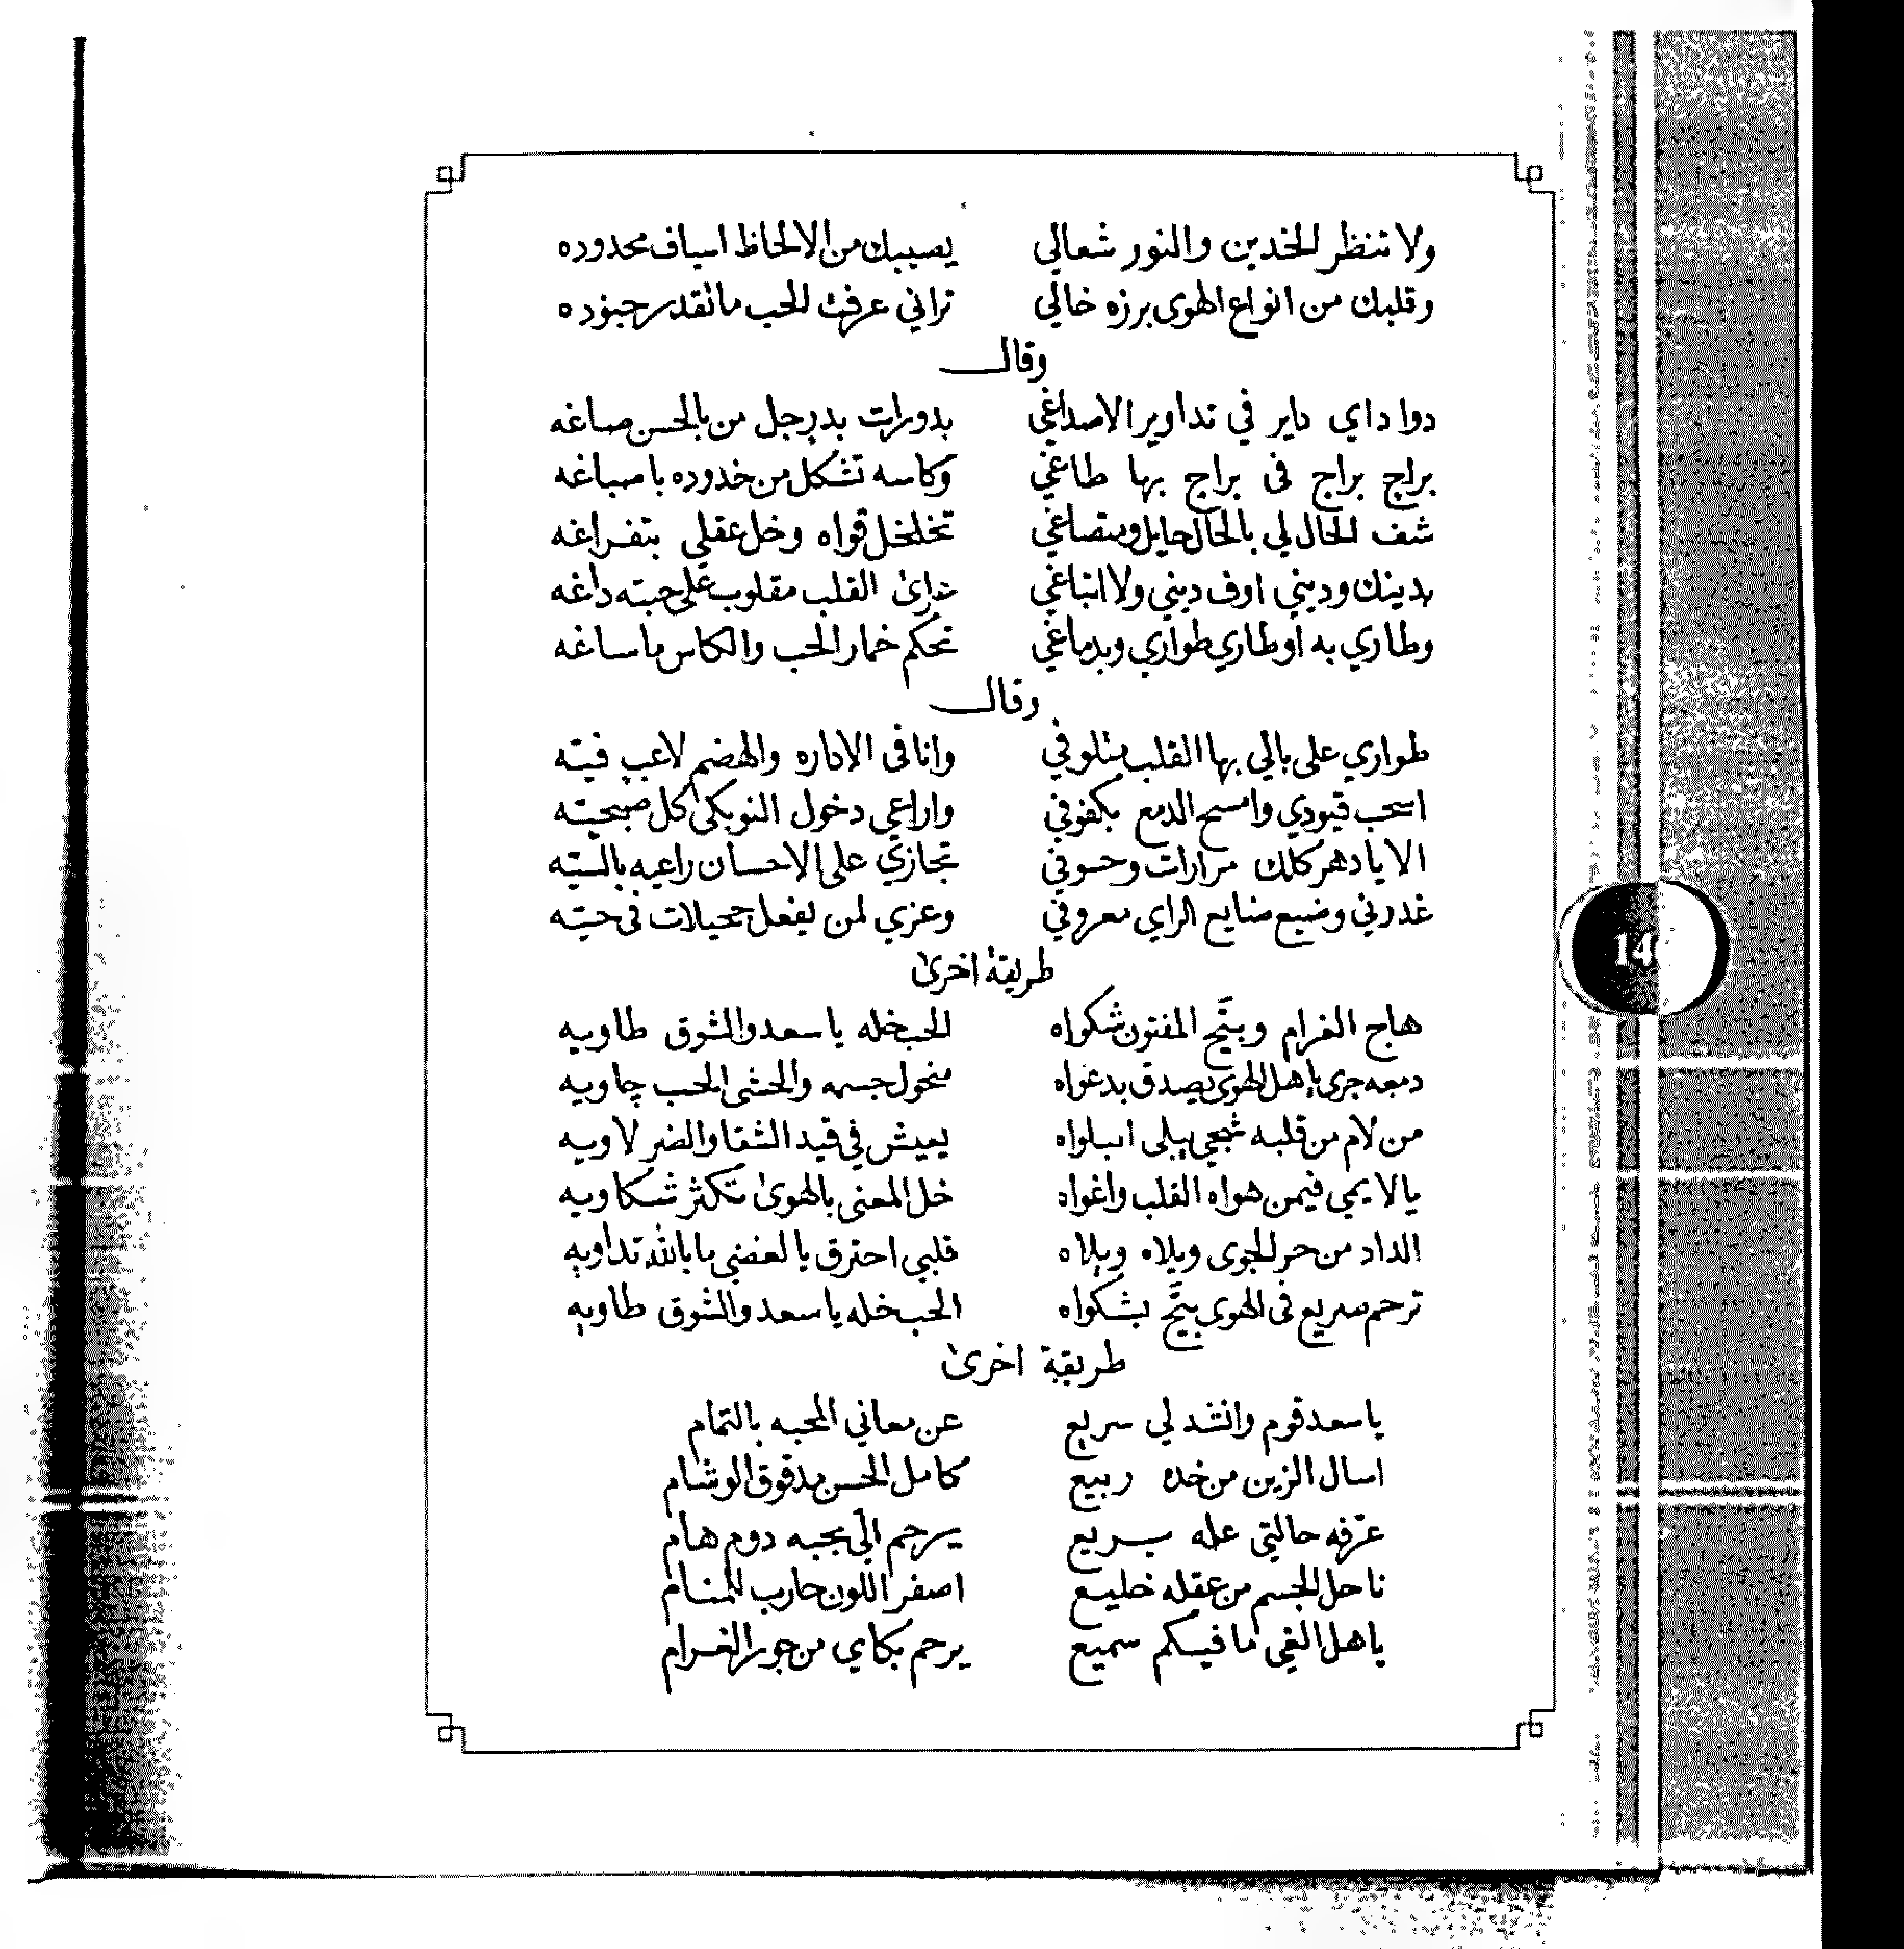 ولا تنظر للخدين والنور شعالي يصيبك من الالحاظ اسياف محدوده
وقلبك من انواع الهوى برزه خالي تراني عرفت للحب ماتقدر جنوده
وقال
دوا داي داير في تداوير الاصداغي بدورات بدر جل من بالحسن صاغه
براج براج في براج بها طاغي وكاسه تشكل من خدوده باصباغه
شف الحال لي بالحال حايل ومتصاغي تخلخل قواه وخل عقلي بتفراغه
بدينك وديني اوف ديني ولا انباغي القلب مقلوب على حبته داغه
وطاري به اوطاري طواري وبدماغي تحكم خمار الحب والكاس ماساغه
وقال
طواري على بالي بها القلب متلوفي وانا في الاداره والهضم لاعب فيته
اسحب قيودي وامسح الدمع بكفوفي واراعي دخول النوبكى كل صبحيته
الا يا دهر كلك مرارات وحسوفي تجازي على الاحسان راعيه بالسيته
غدرني وضيع صنايع الراي معروفي وعزي لمن يفعل جحيلات في حيته
طريقة اخرى
هاج الغرام وبيّح المفتون شكواه الحب خله يا سعد والشوق طاويه
دمعه جرى ياهل الهوى يصدق بدعواه منحول جسمه والحشى الحب چاويه
من لام من قلبه شجي يبلى ابلواه يعيش في قيد الشقا والضر لاويه
يا لايمي فيمن هواه القلب واغواه خل المعنى بالهوى تكثر شكاويه
الداد من حر الجوى ويلاه ويلاه قلبي احترق يا لغضي ما بالله تداويه
ترحم صريع في الهوى بيّح بشكواه الحب خله يا سعد والشوق طاويه
طريقة اخرى
يا سعد قوم وانشد لي سريع عن معاني المحبه بالتمام
اسال الزين من خده ربيع كامل الحسن مدقوق الوشام
عرّفه حالتي عله يريع يرحم الّي بحبه دوم هام
ناحل الجسم من عقله خليع اصفر اللون حارب للمنام
ياهل الغي ما فيكم سميع يرحم بكاي من جور الغرام